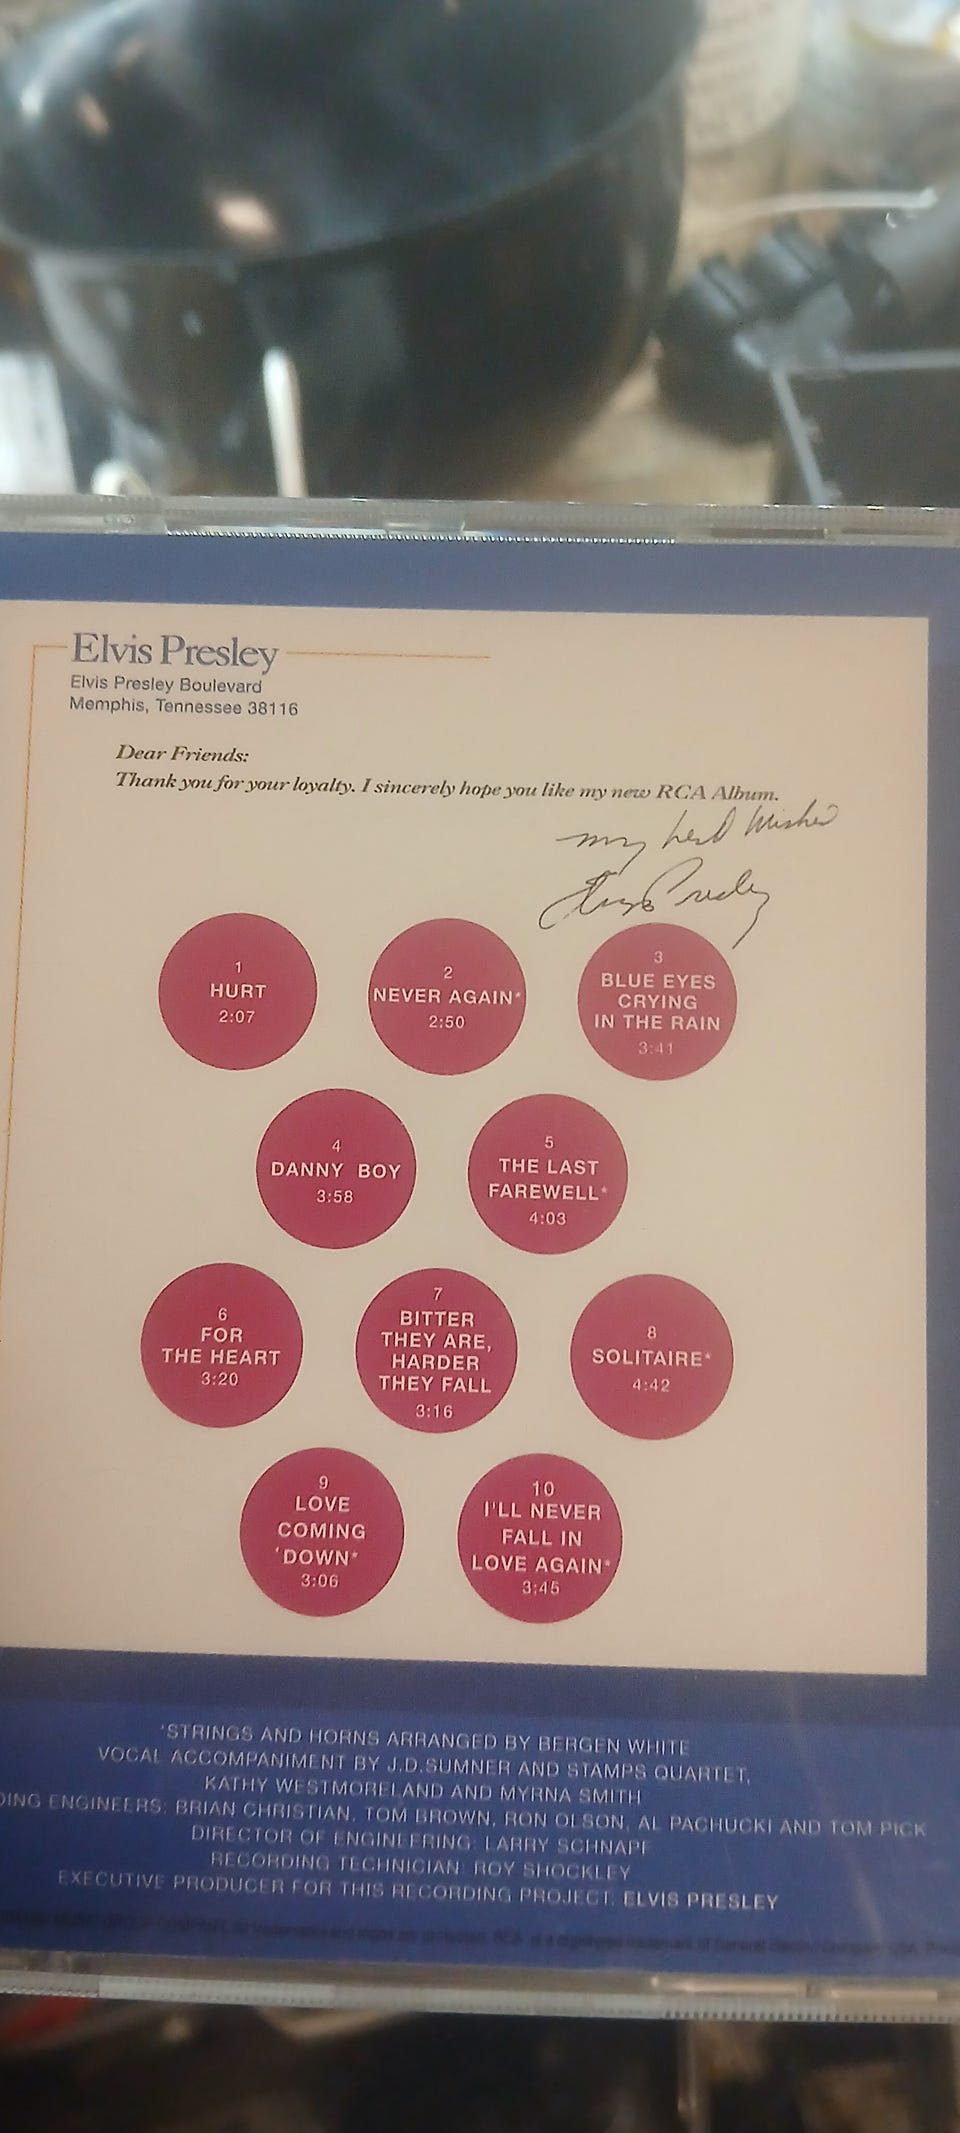 Elvis Presley
Elvis Presley Boulevard
Memphis, Tennessee 38116
Dear Friends:
Thank you for your loyalty. I sincerely hope you like my new RCA Album.
my best wishes
Elvis Presley
1
HURT
2:07
2
NEVER AGAIN*
2:50
3
BLUE EYES
CRYING
IN THE RAIN
3:41
4
DANNY BOY
3:58
5
THE LAST
FAREWELL*
4:03
6
FOR
THE HEART
3:20
7
BITTER
THEY ARE,
HARDER
THEY FALL
3:16
8
SOLITAIRE*
4:42
9
LOVE
COMING
'DOWN*
3:06
10
I'LL NEVER
FALL IN
LOVE AGAIN*
3:45
*STRINGS AND HORNS ARRANGED BY BERGEN WHITE
VOCAL ACCOMPANIMENT BY J.D.SUMNER AND STAMPS QUARTET,
KATHY WESTMORELAND AND MYRNA SMITH
DING ENGINEERS: BRIAN CHRISTIAN, TOM BROWN, RON OLSON, AL PACHUCKI AND TOM PICK
DIRECTOR OF ENGINEERING: LARRY SCHNAPF
RECORDING TECHNICIAN: ROY SHOCKLEY
EXECUTIVE PRODUCER FOR THIS RECORDING PROJECT: ELVIS PRESLEY